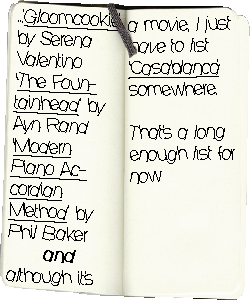 ..'Gloomcookie'
by Serena
Valentino
'The Foun-
tainhead' by
Ayn Rand
'Modern
Piano Ac-
cordian
Method' by
Phil Baker
and
although it's
a movie, I just
have to list
'Casablanca'
somewhere.
That's a long
enough list for
now